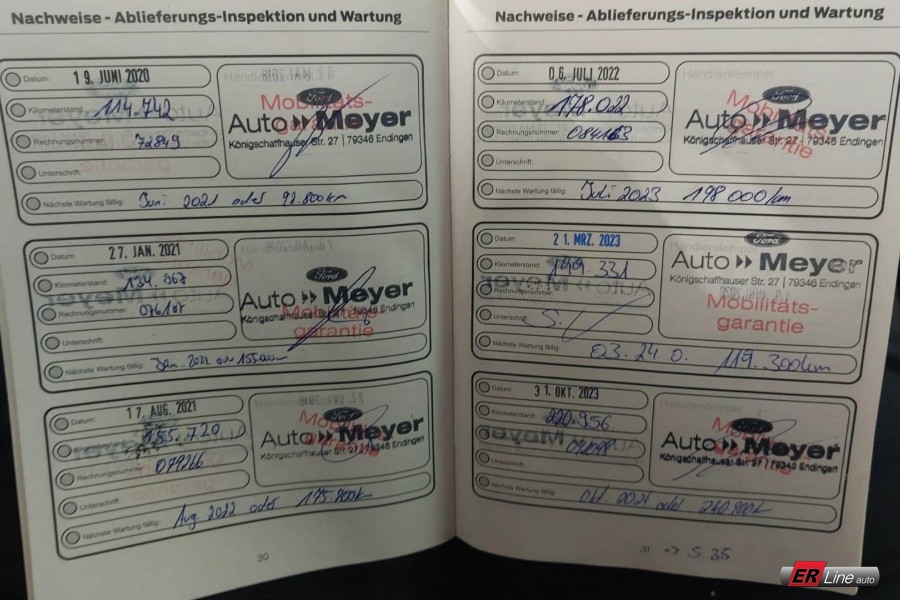 Nachweise - Ablieferungs-Inspektion und Wartung
Datum: 19. JUNI 2020
Kilometerstand: 114.742
Rechnungsnummer: 72849
Unterschrift:
Nächste Wartung fällig: Juni 2021 oder 92.800km
Mobilitäts-
Ford
Auto Meyer
Königschaffhauser Str. 27 | 79346 Endingen
Datum: 27. JAN. 2021
Kilometerstand: 134.967
Rechnungsnummer:
Unterschrift:
Nächste Wartung fällig: Jan. 2022 oder 155.000km
Ford
Auto Meyer
Königschaffhauser Str. 27 | 79346 Endingen
Mobilitäts-
garantie
Datum: 17. AUG. 2021
155.720
Rechnungsnummer: 079266
Unterschrift:
Nächste Wartung fällig: Aug. 2022 oder
Ford
Auto Meyer
Königschaffhauser Str. 27 | 79346 Endingen
30
Nachweise - Ablieferungs-Inspektion und Wartung
Datum: 06. JULI 2022
Kilometerstand: 178.022
Rechnungsnummer: 084163
Unterschrift:
Nächste Wartung fällig: Juli 2023 198.000km
Händlerstempel
Mobilitäts-
garantie
Ford
Auto Meyer
Königschaffhauser Str. 27 | 79346 Endingen
Datum: 21. MRZ. 2023
Kilometerstand: 199.331
Rechnungsnummer:
Unterschrift:
Nächste Wartung fällig: 03.24 o. 119.300km
Ford
Auto Meyer
Königschaffhauser Str. 27 | 79346 Endingen
Mobilitäts-
garantie
Datum: 31. OKT. 2023
Kilometerstand: 220.956
Unterschrift:
Nächste Wartung fällig: Okt. 2024 oder 240.900k
Händlerstempel
Auto Meyer
Königschaffhauser Str. 27 | 79346 Endingen
31 -> S. 35
ER Line auto